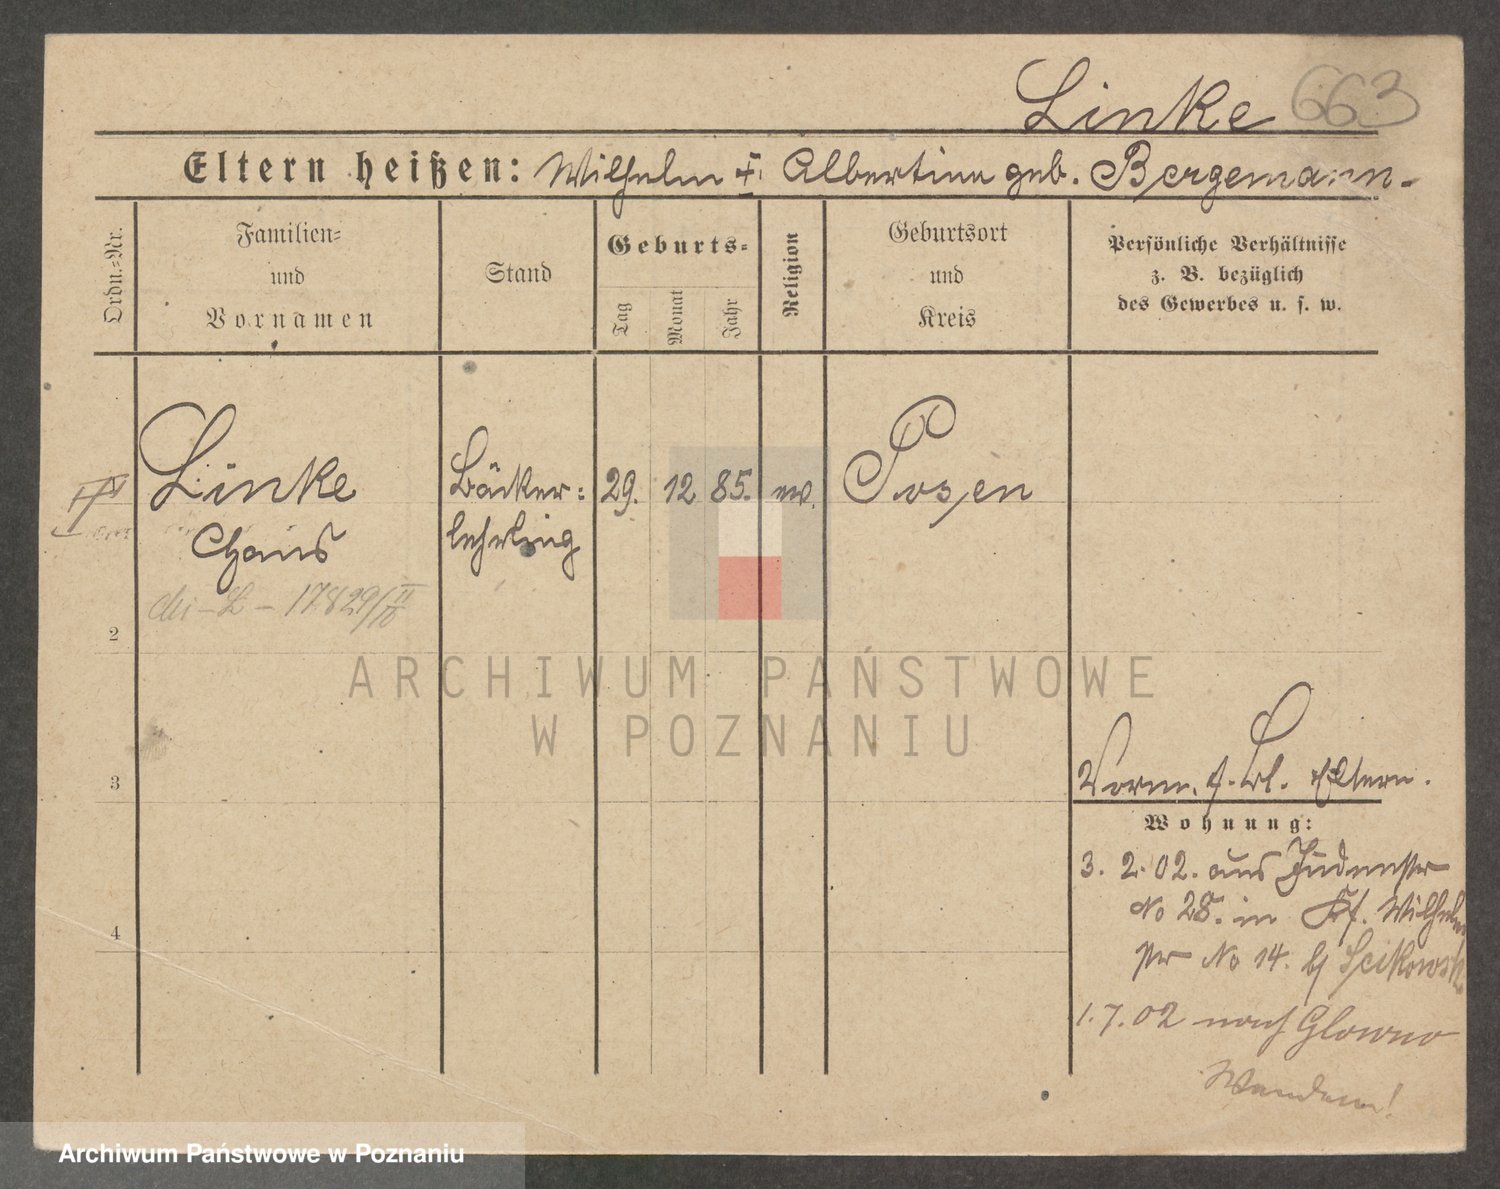 Linke 663
Eltern heißen: Wilhelm u. Albertine geb. Bergemann.
Ordn.=Nr.
Familien=
und
Vornamen
Stand
Geburts=
Tag
Monat
Jahr
Religion
Geburtsort
und
Kreis
Persönliche Verhältnisse
z. B. bezüglich
des Gewerbes u. s. w.
Linke
Hans
Bäcker=
lehrling
29. 12 85. ev.
Posen
17829/
2
ARCHIWUM PAŃSTWOWE
W POZNANIU
3
4
Vorm. f. Eltern.
Wohnung:
3. 2. 02. aus Judenstr
No 28. in Wilhelm
str No 14. b/
1. 7. 02 nach Glowno
Wenden!
Archiwum Państwowe w Poznaniu